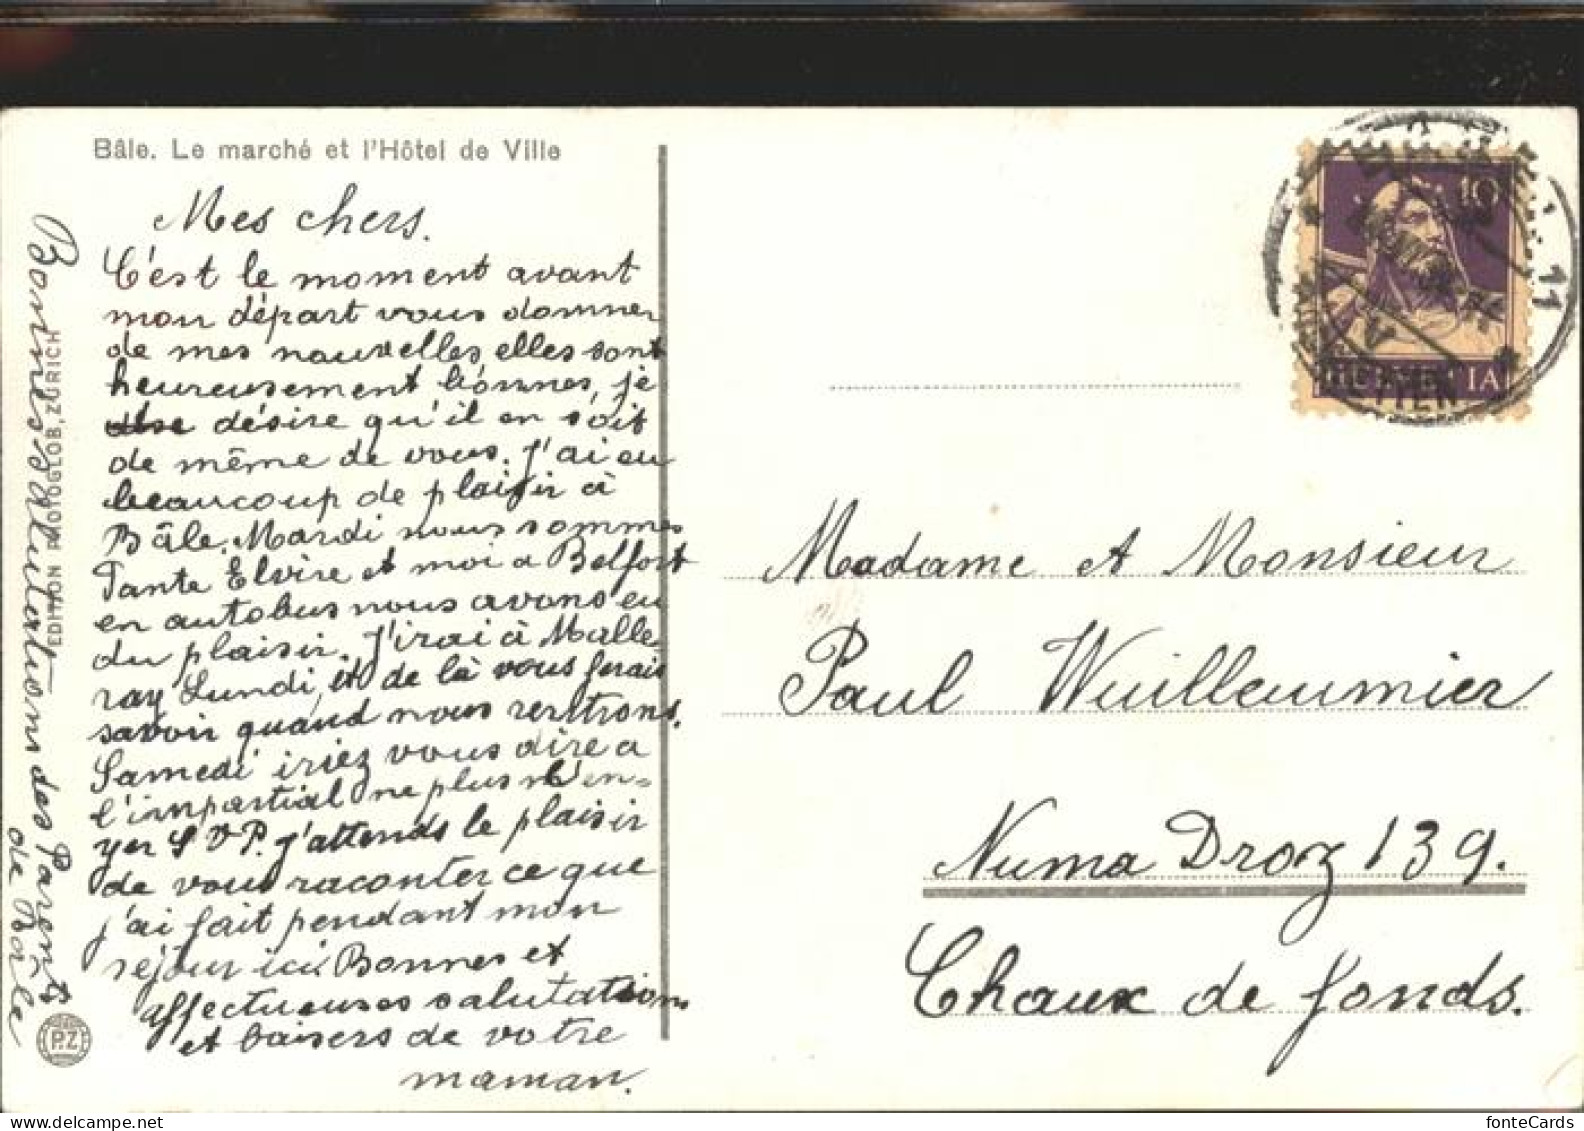 Bâle. Le marché et l'Hôtel de Ville
Mes chers.
C'est le moment avant
mon départ vous donner
de mes nouvelles, elles sont
heureusement bonnes, je
désire qu'il en soit
de même de vous. J'ai eu
beaucoup de plaisir à
Bâle. Mardi nous sommes
Tante Elvire et moi a Belfort
en autobus nous avons eu
du plaisir. J'irai à Malle
ray Lundi, et de là vous ferais
savoir quand nous rentrons.
Samedi iriez vous dire a
l'impartial ne plus l'en=
yer S V P. j'attends le plaisir
de vous raconter ce que
j'ai fait pendant mon
séjour ici Bonnes et
affectueuses salutations
et baisers de votre
maman.
Bonnes salutations des Parents
de Bâle
EDITION PHOTOGLOB, ZÜRICH
P.Z
10
HELVETIA
11
Madame et Monsieur
Paul Wuilleumier
Numa Droz 139.
Chaux de fonds.
fonteCards